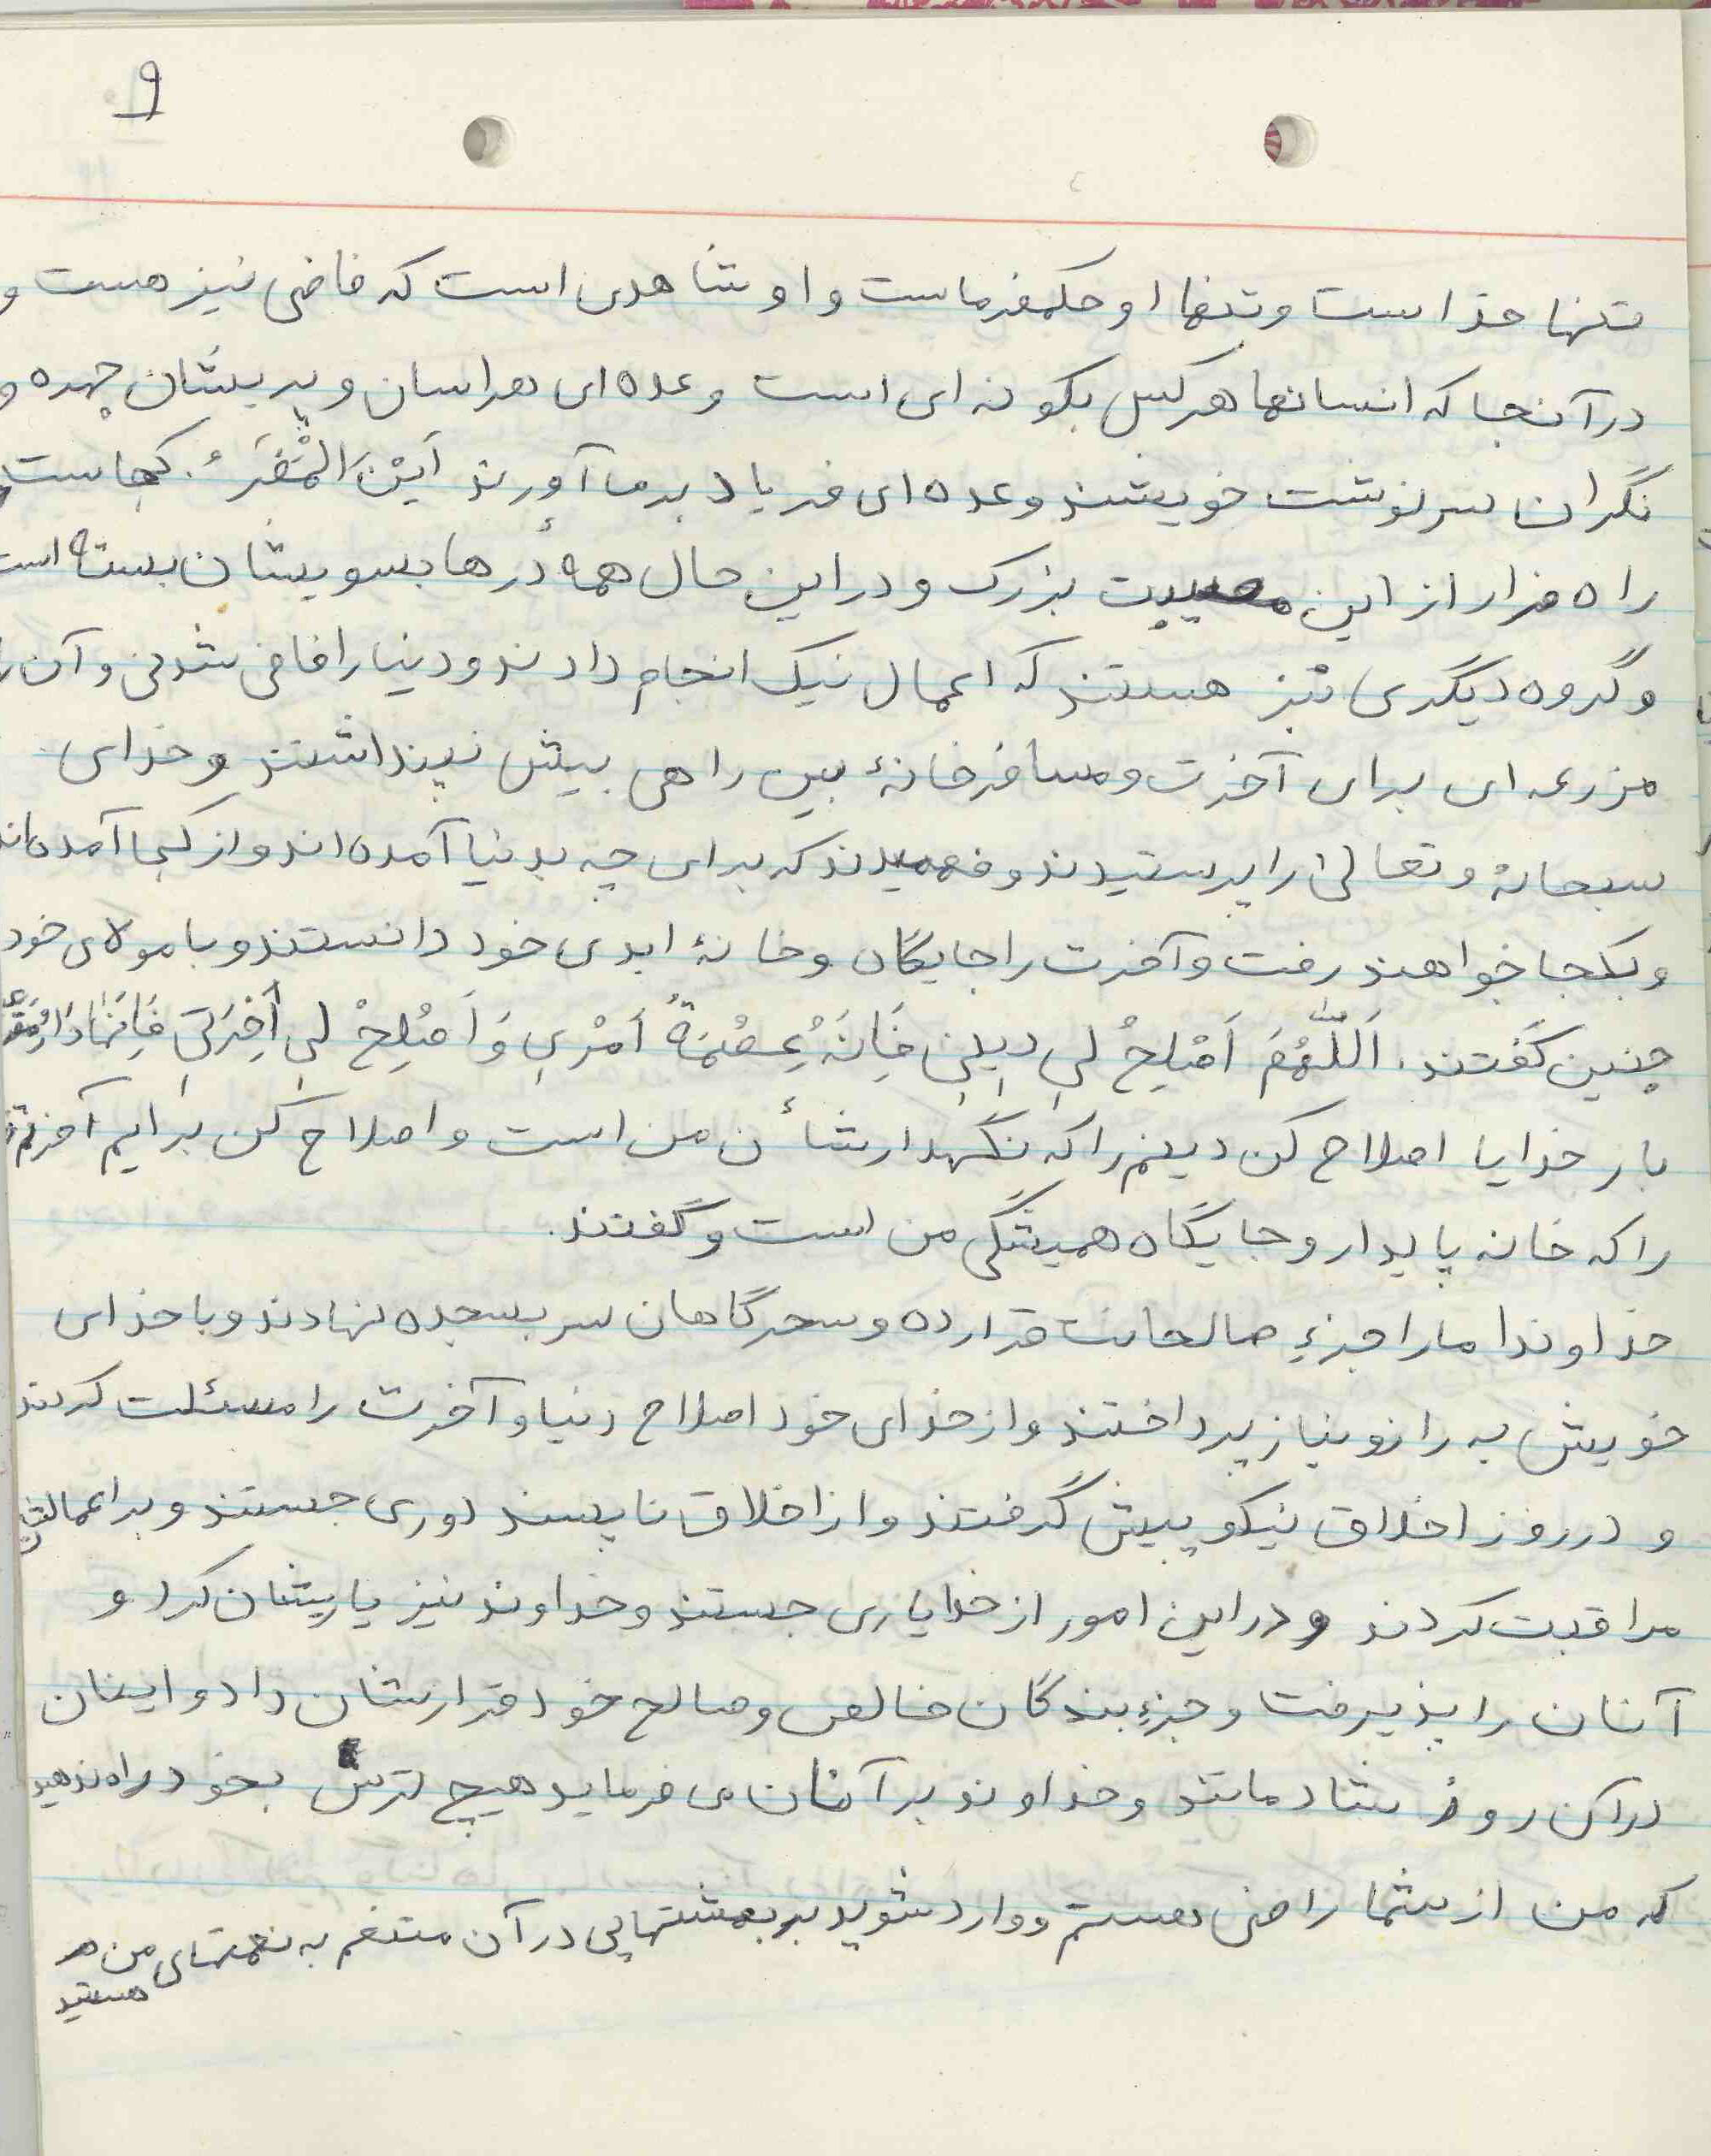 ۹
تنها خداست و تنها او حکمفرماست و او شاهدی است که قاضی نیز هست و
در آنجا که انسانها هر کس بگونه ای است و عده ای هراسان و پریشان چهره و
نگران سرنوشت خویشند و عده ای فریاد برمی آورند اَیْنَ الْمَفَرُّ. کجاست
راه فرار از این مصیبت بزرگ و در این حال همهٔ درها بسویشان بسته است
و گروه دیگری نیز هستند که اعمال نیک انجام دادند و دنیا را فانی شدنی و آن را
مزرعه ای برای آخرت و مسافرخانهٔ بین راهی بیش نپنداشتند و خدای
سبحانهٔ و تعالیٰ را پرستیدند و فهمیدند که برای چه بدنیا آمده اند و از کجا آمده اند
و بکجا خواهند رفت و آخرت را جایگاه و خانهٔ ابدی خود دانستند و با مولای خود
چنین گفتند. اَللّٰهُمَ اَصْلِحْ لی دِینِی فَاِنَهُ عِصْمَةُ اَمْرِی وَ اَصْلِحْ لی آخِرَتی فَاِنَهٰا دَارُ مَقَرّی
بار خدایا اصلاح کن دینم را که نگهدار شأن من است و اصلاح کن برایم آخرتم
را که خانه پایدار و جایگاه همیشگی من است و گفتند.
خداوندا ما را جزءِ صالحانت قرار ده و سحرگاهان سر بسجده نهادند و با خدای
خویش به راز و نیاز پرداختند و از خدای خود اصلاح دنیا و آخرت را مسئلت کردند
و در روز اخلاق نیکو پیش گرفتند و از اخلاق ناپسند دوری جستند و بر اعمالشان
مراقبت کردند و در این امور از خدا یاری جستند و خداوند نیز یاریشان کرد و
آنان را پذیرفت و جزءِ بندگان خالص و صالح خود قرارشان داد و اینان
در آن روز شادمانند و خداوند بر آنان می فرماید هیچ ترس بخود راه ندهید
که من از شما راضی هستم و وارد شوید بر بهشتهایی در آن متنعم به نعمتهای من
هستید